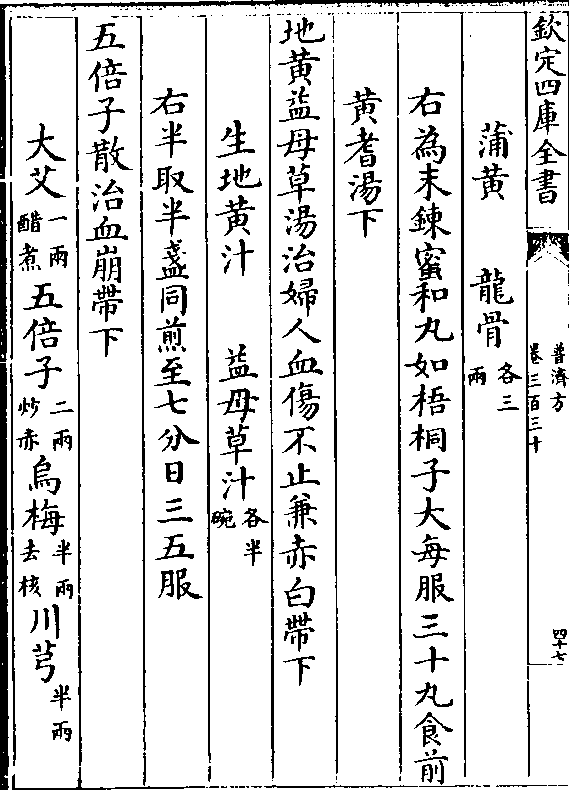 欽定四庫全書
普濟方
卷三百三十
四十七
蒲黄　龍骨各三兩
右為末鍊蜜和丸如梧桐子大每服三十丸食前
黄耆湯下
地黄益母草湯治婦人血傷不止兼赤白帶下
生地黄汁　益母草汁各半碗
右半取半盞同煎至七分日三五服
五倍子散治血崩帶下
大艾一兩醋煮五倍子二兩炒赤烏梅半兩去核川芎半兩